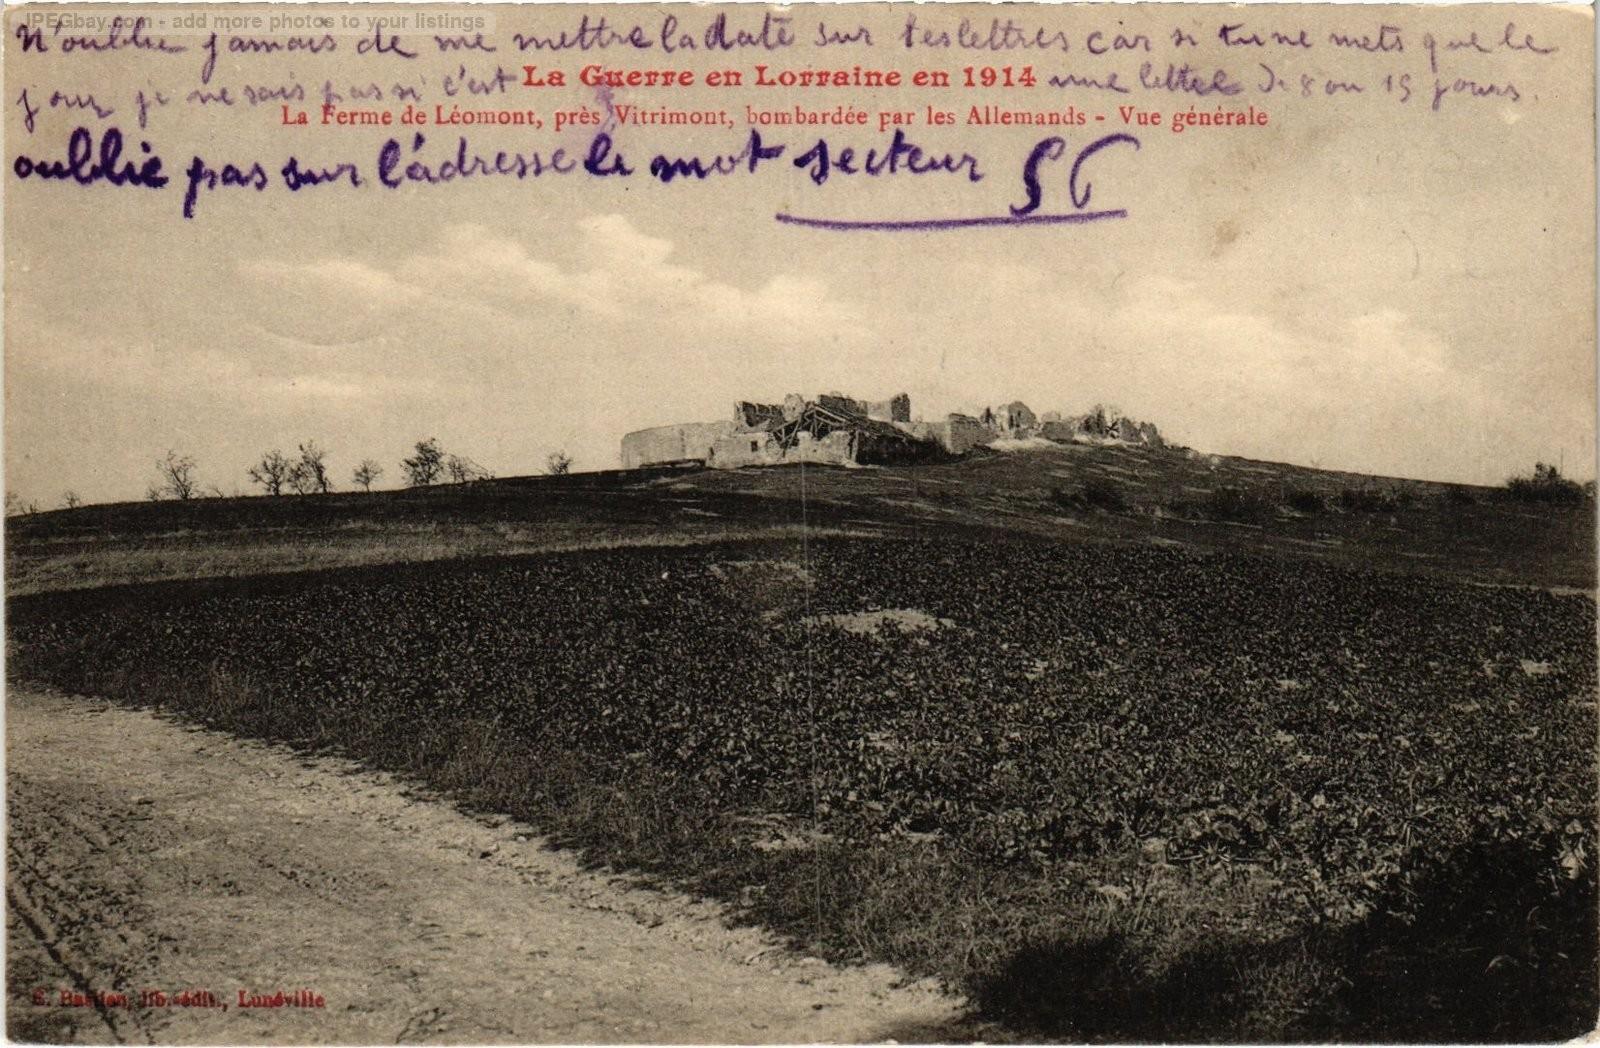 JPEGbay.com - add more photos to your listings
N'oublie jamais de me mettre la date sur tes lettres car si tu ne mets que le
jour je ne sais pas si c'est une lettre de 8 ou 15 jours.
La Guerre en Lorraine en 1914
La Ferme de Léomont, près Vitrimont, bombardée par les Allemands - Vue générale
oublie pas sur l'adresse le mot secteur 56
E. Bastien, lib.-édit., Lunéville